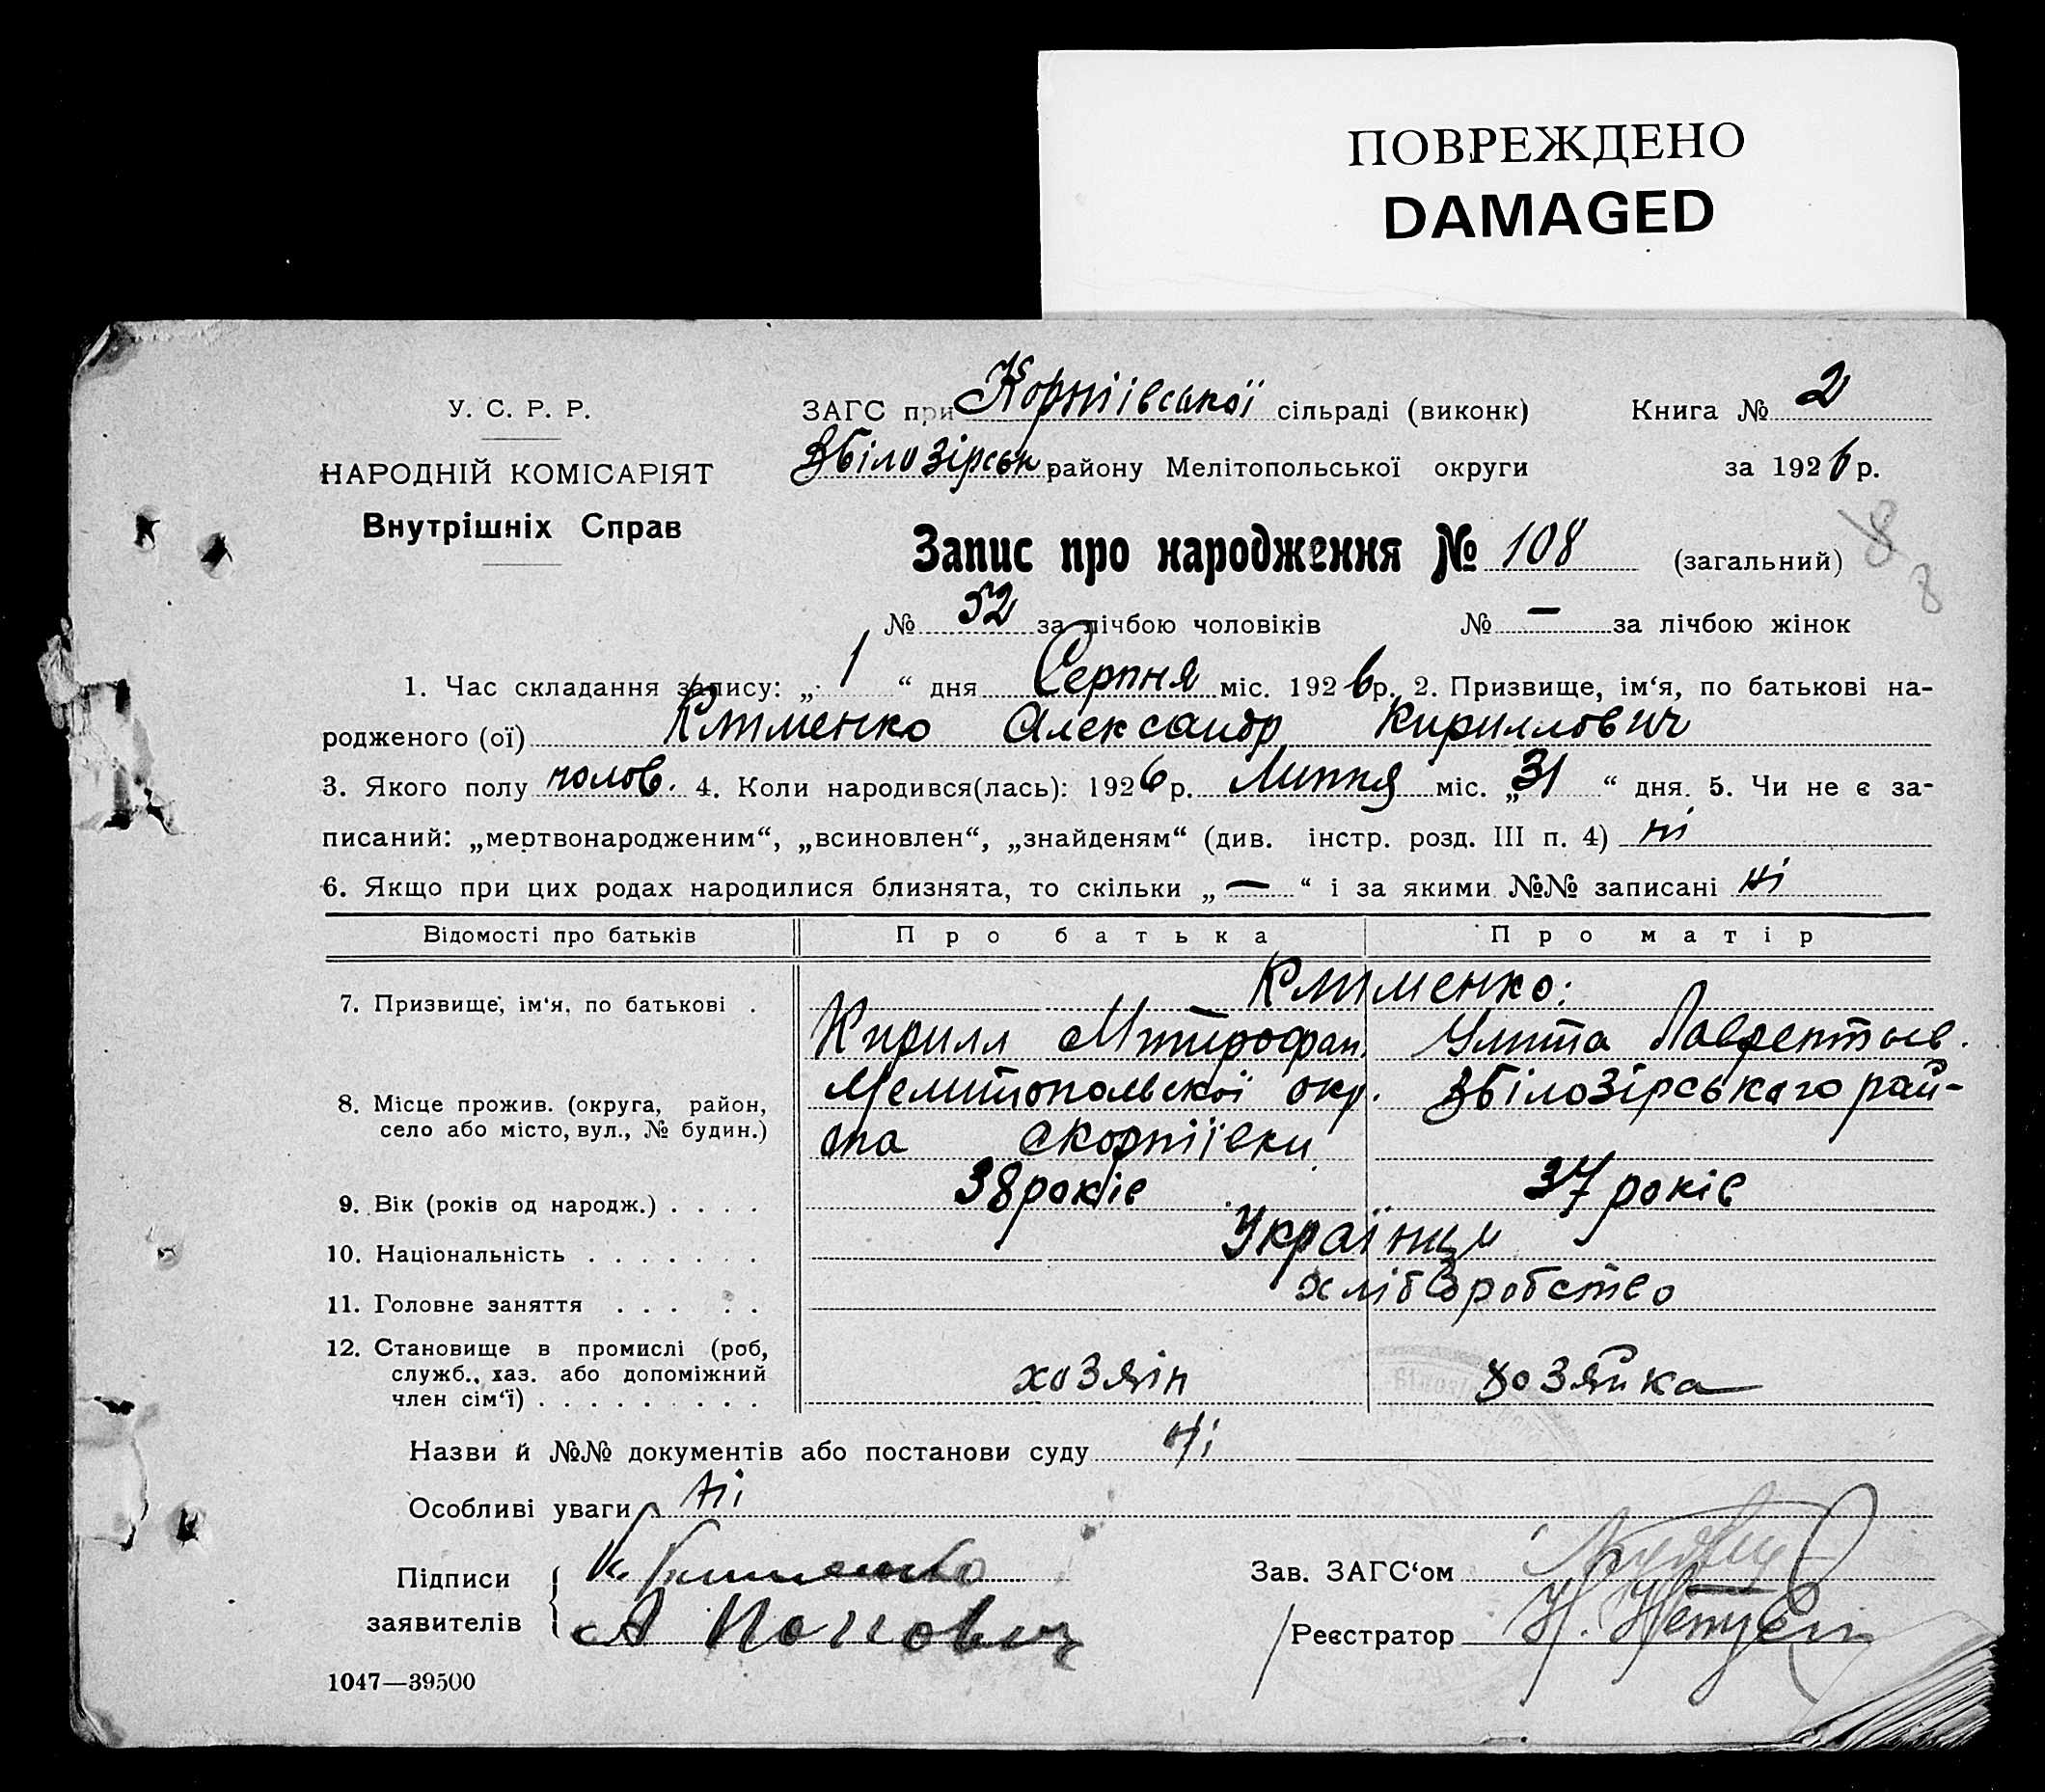 ПОВРЕЖДЕНО
DAMAGED
У. С. Р. Р.
НАРОДНІЙ КОМІСАРІЯТ
Внутрішніх Справ
ЗАГС при Корніївської сільраді (виконк)
Збілозірськ району Мелітопольської округи
Книга № 2
за 1926 р.
Запис про народження № 108 (загальний)
8
8
№ 52 за лічбою чоловіків № — за лічбою жінок
1. Час складання запису: „ 1 “ дня Серпня міс. 1926 р. 2. Призвище, ім‘я, по батькові на-
родженого (ої) Клименко Александр Кириллович
3. Якого полу чолов. 4. Коли народився(лась): 1926 р. Липня міс. „ 31 “ дня. 5. Чи не є за-
писаний: „мертвонародженим“, „всиновлен“, „знайденям“ (див. інстр. розд. III п. 4) ні
6. Якщо при цих родах народилися близнята, то скільки „ — “ і за якими №№ записані ні
Відомості про батьків Про батька Про матір
7. Призвище, ім‘я, по батькові . Клименко:
Кирилл Митрофан. Улита Лаврентьев.
8. Місце прожив. (округа, район, село або місто, вул., № будин.) Мелитопольскої окр. Збілозірського рай-
та с Корніївки
9. Вік (років од народж.) . . . . 38 років 37 років
10. Національність . . . . . . . Українци
11. Головне заняття . . . . . хліборобство
12. Становище в промислі (роб,
служб., хаз. або допоміжний
член сім‘ї) . . . . . . . . . хозяін хозяйка
Назви й №№ документів або постанови суду ні
Особливі уваги ні
Підписи К. Клименко
заявителів А Попович
Зав. ЗАГС‘ом
Реєстратор Н.
1047—39500